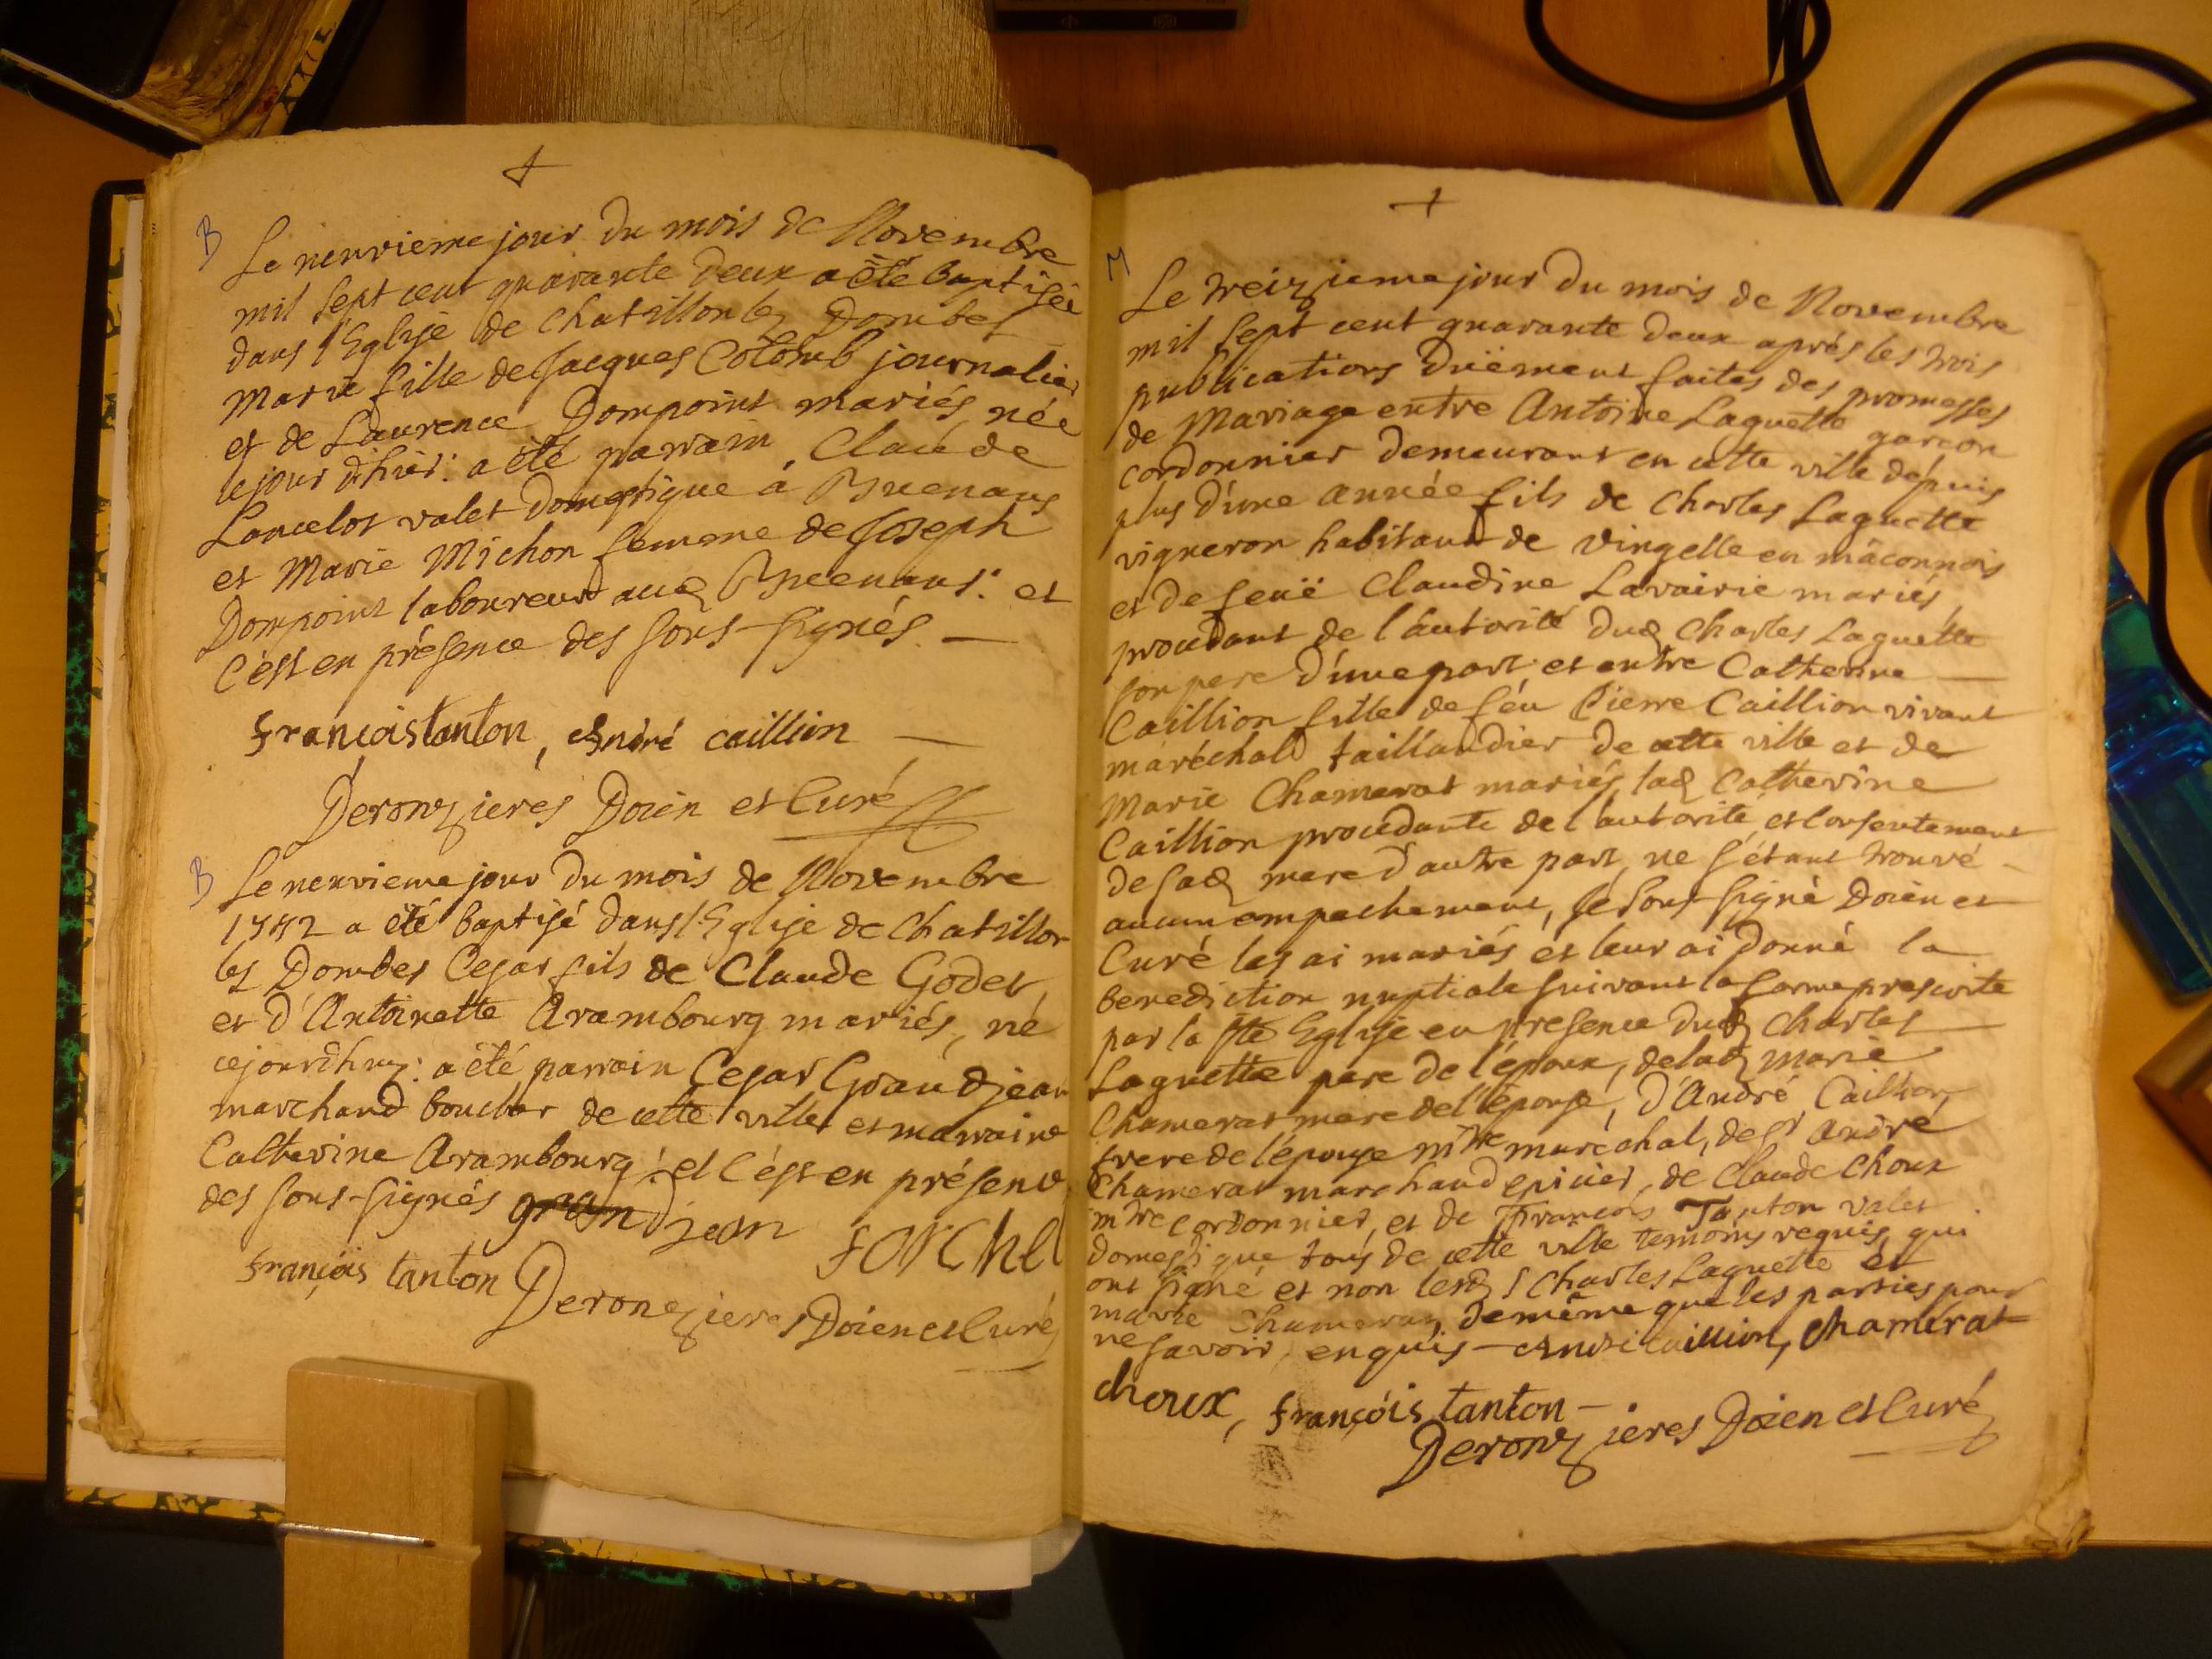 B
Le neuvieme jour du mois de Novembre
mil sept cent quarante deux a été baptisée
dans l'Eglise de Chatillon les Dombes
Marie fille de Jacques Colomb journalier
et de Laurence Dompoint mariés, née
le jour d'hier: a été parrain Claude
Lancelot valet domestique à Buenans
et Marie Michon femme de Joseph
Dompoint laboureur aud Buenans: et
C'est en présence des sous-signés. —
françois tanton, André caillion —
Deronzieres Doien et Curé
B
Le neuvieme jour du mois de Novembre
1742 a été baptisé dans l'Eglise de Chatillon
les Dombes Cesar fils de Claude Godet
et d'Antoinette Arambourg mariés, né
cejourdhuy: a été parrain Cesar Grandjean
marchand boucher de cette ville et marraine
Catherine Arambourg: et C'est en présence
des sous-signés grandjean
françois tanton Deronzieres Doien et Curé
M
Le treizieme jour du mois de Novembre
mil sept cent quarante deux aprés les trois
publications düement faites des promesses
de Mariage entre Antoine Laguette garcon
cordonnier demeurant en cette ville dépuis
plus d'une année fils de Charles Laguette
vigneron habitant de Vingelle en mâconnois
et de feuë Claudine Lavairie mariés,
procedant de l'autorité dud Charles Laguette
son pere d'une part; et entre Catherine —
Caillion fille de féu Pierre Caillion vivant
maréchald taillandier de cette ville et de
Marie Chamerat mariés, lad Catherine
Caillion procedante de l'autorité, et Consentement
de sad mere d'autre part, ne s'étant trouvé —
aucun empechement, Je sous-signé Doien et
Curé les ai mariés et leur ai donné la
benediction nuptiale suivant la forme prescrite
par la ste Eglise en presence dud Charles —
Laguette pere de l'époux, de lad Marie
Chamerat mere de l'épouse, d'André Caillion
frere de l'épouse mtre maréchal, de sr André
Chamerat marchand epicier, de Claude Choux
mtre cordonnier, et de François Tanton valet
domestique tous de cette ville temoins requis, qui
ont signé et non lesd Charles Laguette et
marie Chamerat, de même que les parties pour
ne savoir, enquis — André caillion, chamerat
choux, françois tanton —
Deronzieres Doien et Curé